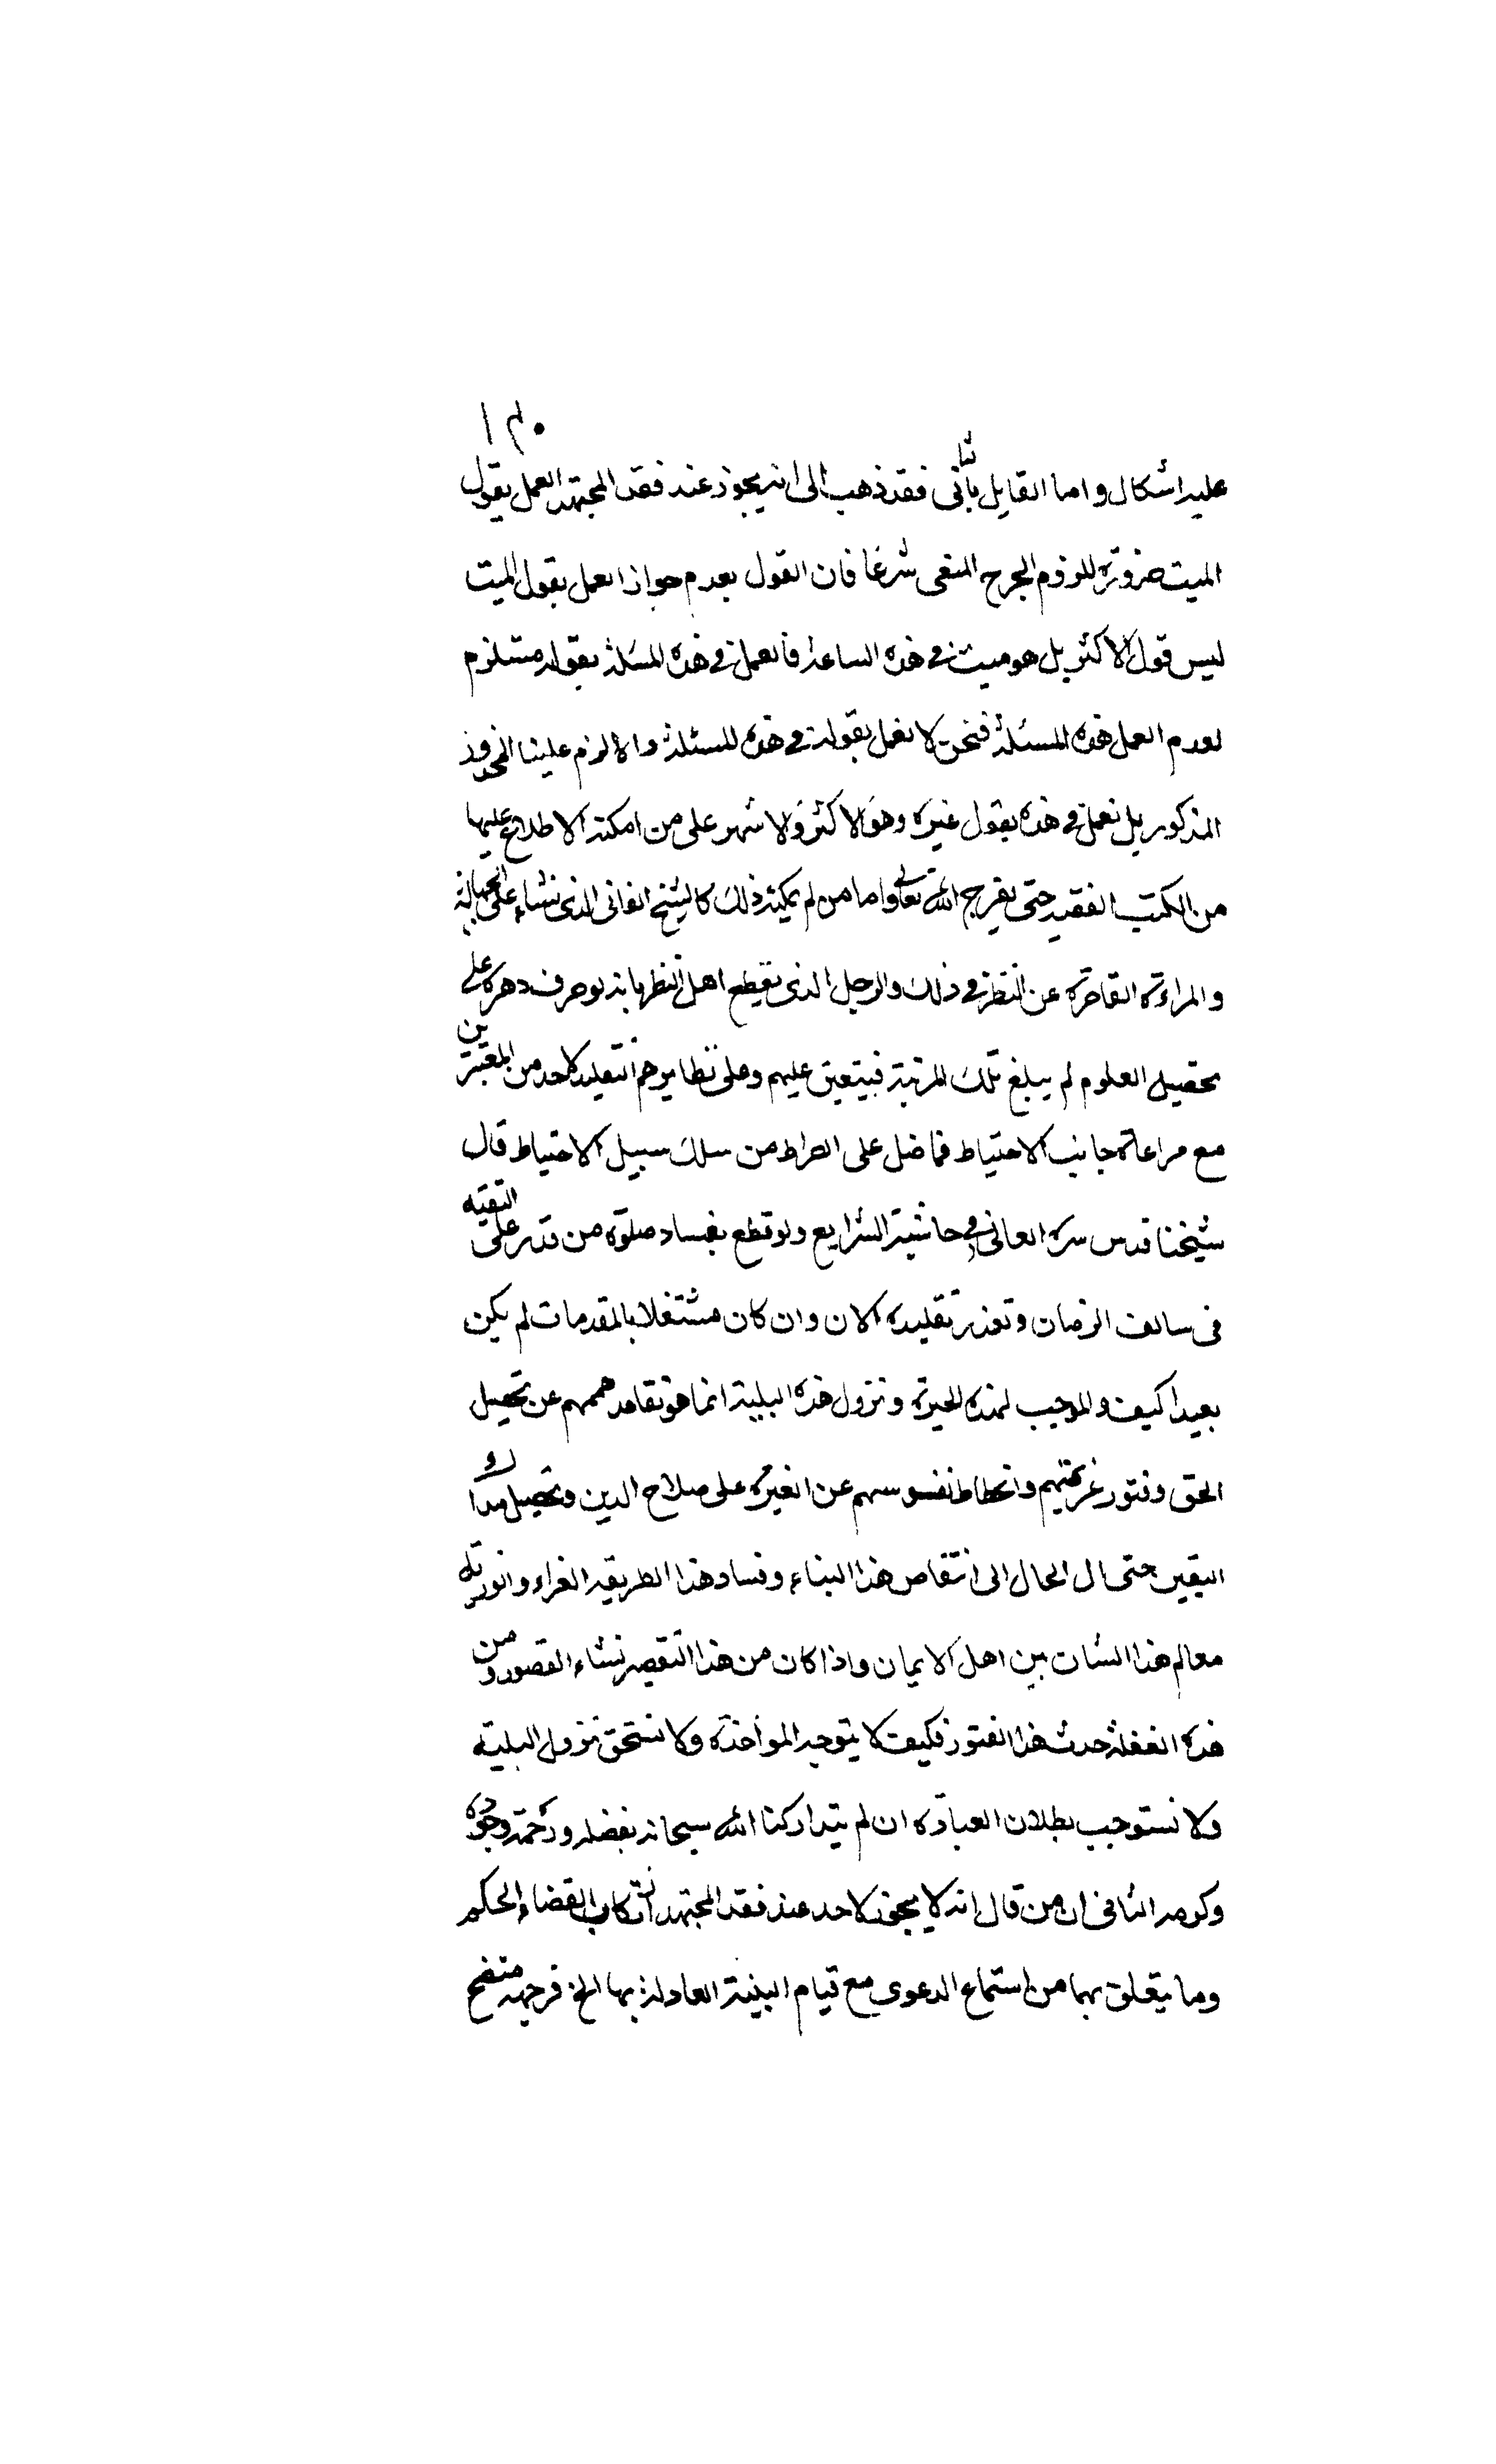 ١٣٠
عليه اشكال واما القايل بالثانى فقد ذهب الى انه يجوز عند فقد المجتهد العمل بقول
الميت ضرورة للزوم الحرج المنفى شرعًا فان القول بعدم جواز العمل بقول الميت
ليس قول الاكثر بل هو ميت فى هذه الساعة فالعمل فى هذه المسئلة بقوله مستلزم
لعدم العمل هذه المسئلة فنحن لا نعمل بقوله فى هذه المسئلة والا لزم علينا المحذور
المذكور بل نعمل فى هذه بقول غيره وهو الاكثر والاشهر على من امكنه الاطلاع عليها
من الكتب الفقهيه حتى يفرج الله تعالى واما من لم يمكنه ذلك كالشيخ الفانى الذى نشاء على الجهالة
والمراءة القاصرة عن النظر فى ذلك والرجل الذى يقطع اهل النظر بانه لو صرف دهره على
تحصيل العلوم لم يبلغ تلك المرتبة فيتعين عليهم وعلى نظايرهم التقليد لاحد من المعتبرين
مع مراعاة جانب الاحتياط فما ضل على الصراط من سلك سبيل الاحتياط قال
شيخنا قدس سره العانى فى حاشية الشرايع ولو قطع بفساد صلوة من قدر على التفقه
فى سالف الزمان وتعذر تقليده الان وان كان مشتغلا بالمقدمات لم يكن
بعيدا كيف والموجب لهذه الحيرة ونزول هذه البلية انما هو تقاعد هممهم عن تحصيل
الحق وفتور عزيمتهم وانحطاط نفوسهم عن الغيرة على صلاح الدين وتحصيل مدارك
اليقين حتى ال الحال الى انتقاص هذا البناء وفساد هذا الطريقه الغراء و
معالم هذا الشان بين اهل الايمان واذا كان من هذا التقصير نشاء القصور ومن
هذه الغفلة حدث هذا الفتور فكيف لا يتوجه المواخذة ولا نستحق نزول البلية
ولا نستوجب بطلان العبادة ان لم يتداركنا الله سبحانه بفضله ورحمته وجوده
وكرمه الثانى ان من قال انه لا يجوز لاحد عند فقد المجتهد ارتكاب القضاء والحكم
وما يتعلق بهما من استماع الدعوى مع قيام البينة العادلة بها الخ فوجهه متضح